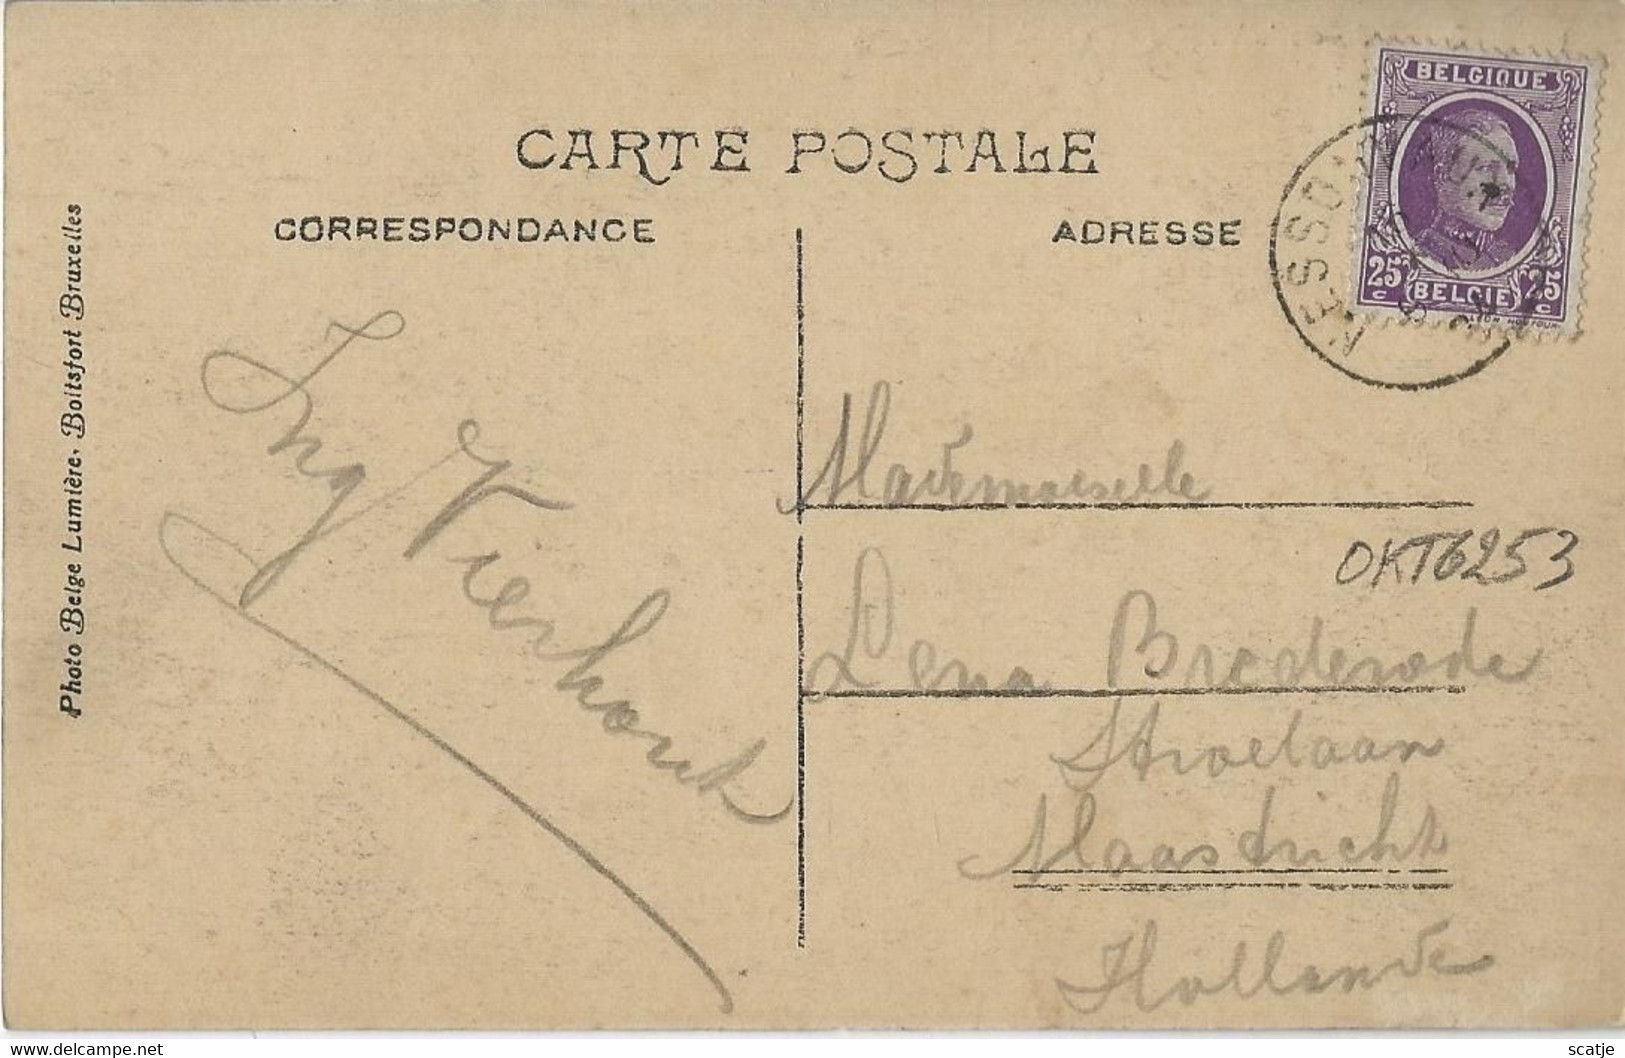 CARTE POSTALE
CORRESPONDANCE
ADRESSE
Photo Belge Lumière, Boitsfort Bruxelles
BELGIQUE
25 c
BELGIE
25 c
NESSONVAUX
Ing Vierhout
Mademoiselle
OKT6253
Lena Brederode
Stroelaan
Maastricht
Hollande
www.delcampe.net
scatje